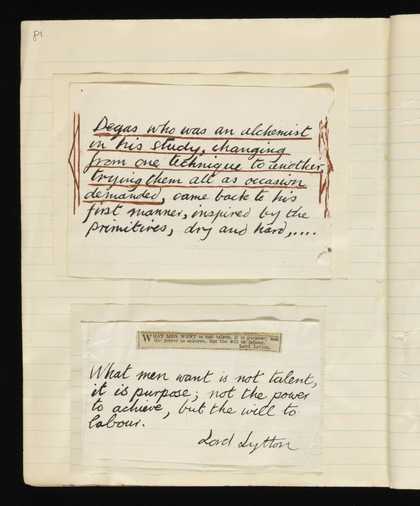 81
Degas who was an alchemist
in his study, changing
from one technique to another,
trying them all as occasion
demanded, came back to his
first manner, inspired by the
primitives, dry and hard,....
WHAT MEN WANT is not talent, it is purpose; not
the power to achieve, but the will to labour.
Lord Lytton.
What men want is not talent,
it is purpose; not the power
to achieve, but the will to
labour.
Lord Lytton